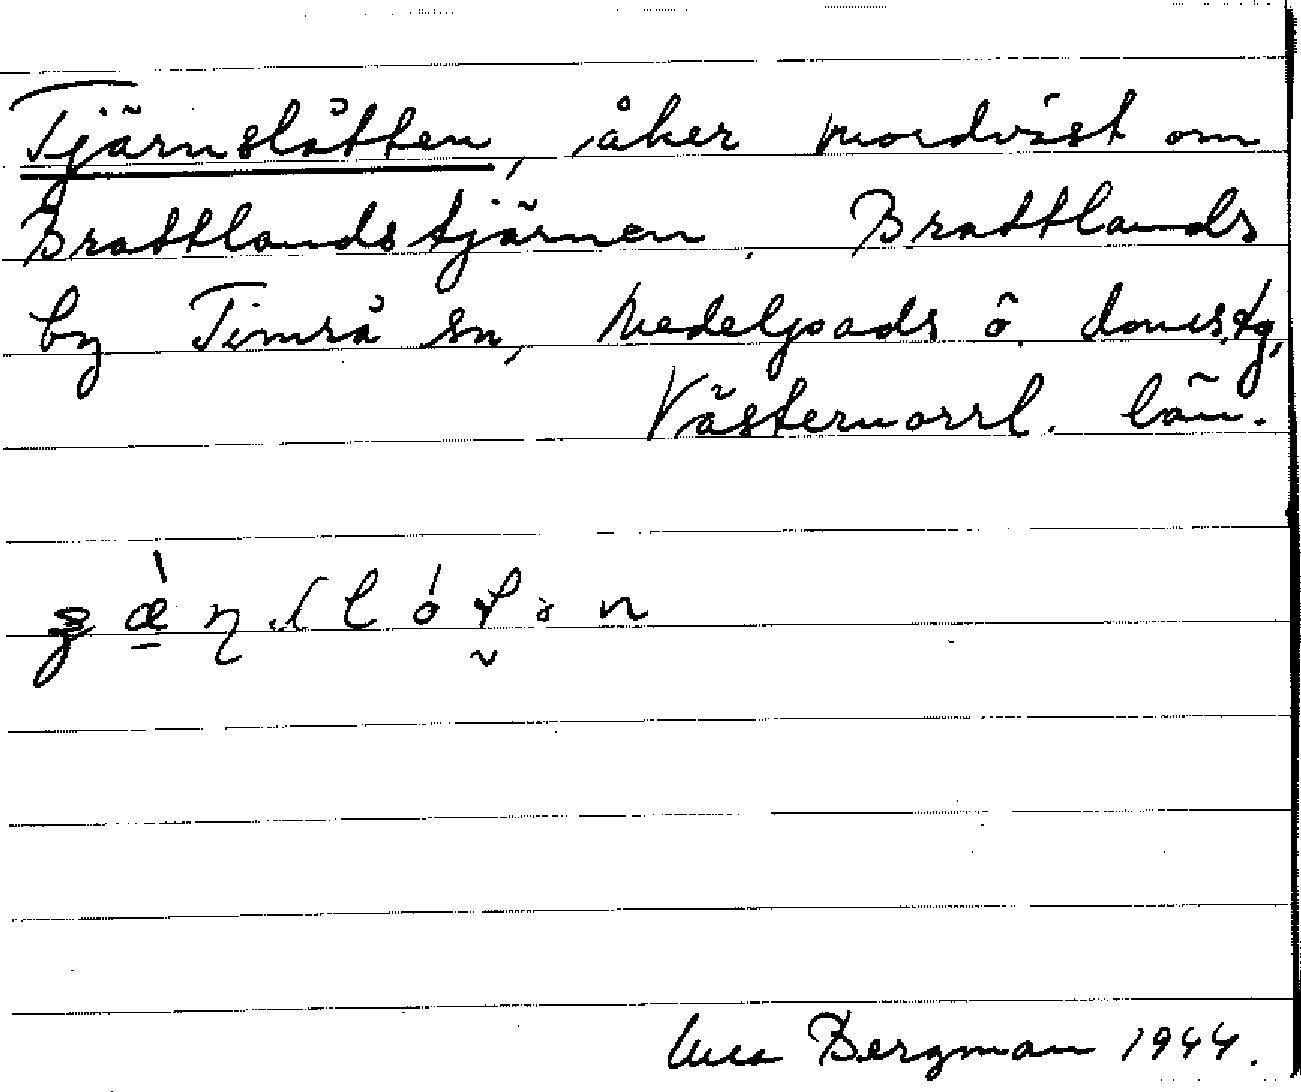 Tjärnslåtten, åker nordväst om
Brattlandstjärnen, Brattlands
by Timrå sn, Medelpads ö. domstg,
Västernorrl. län.
Bergman 1944.